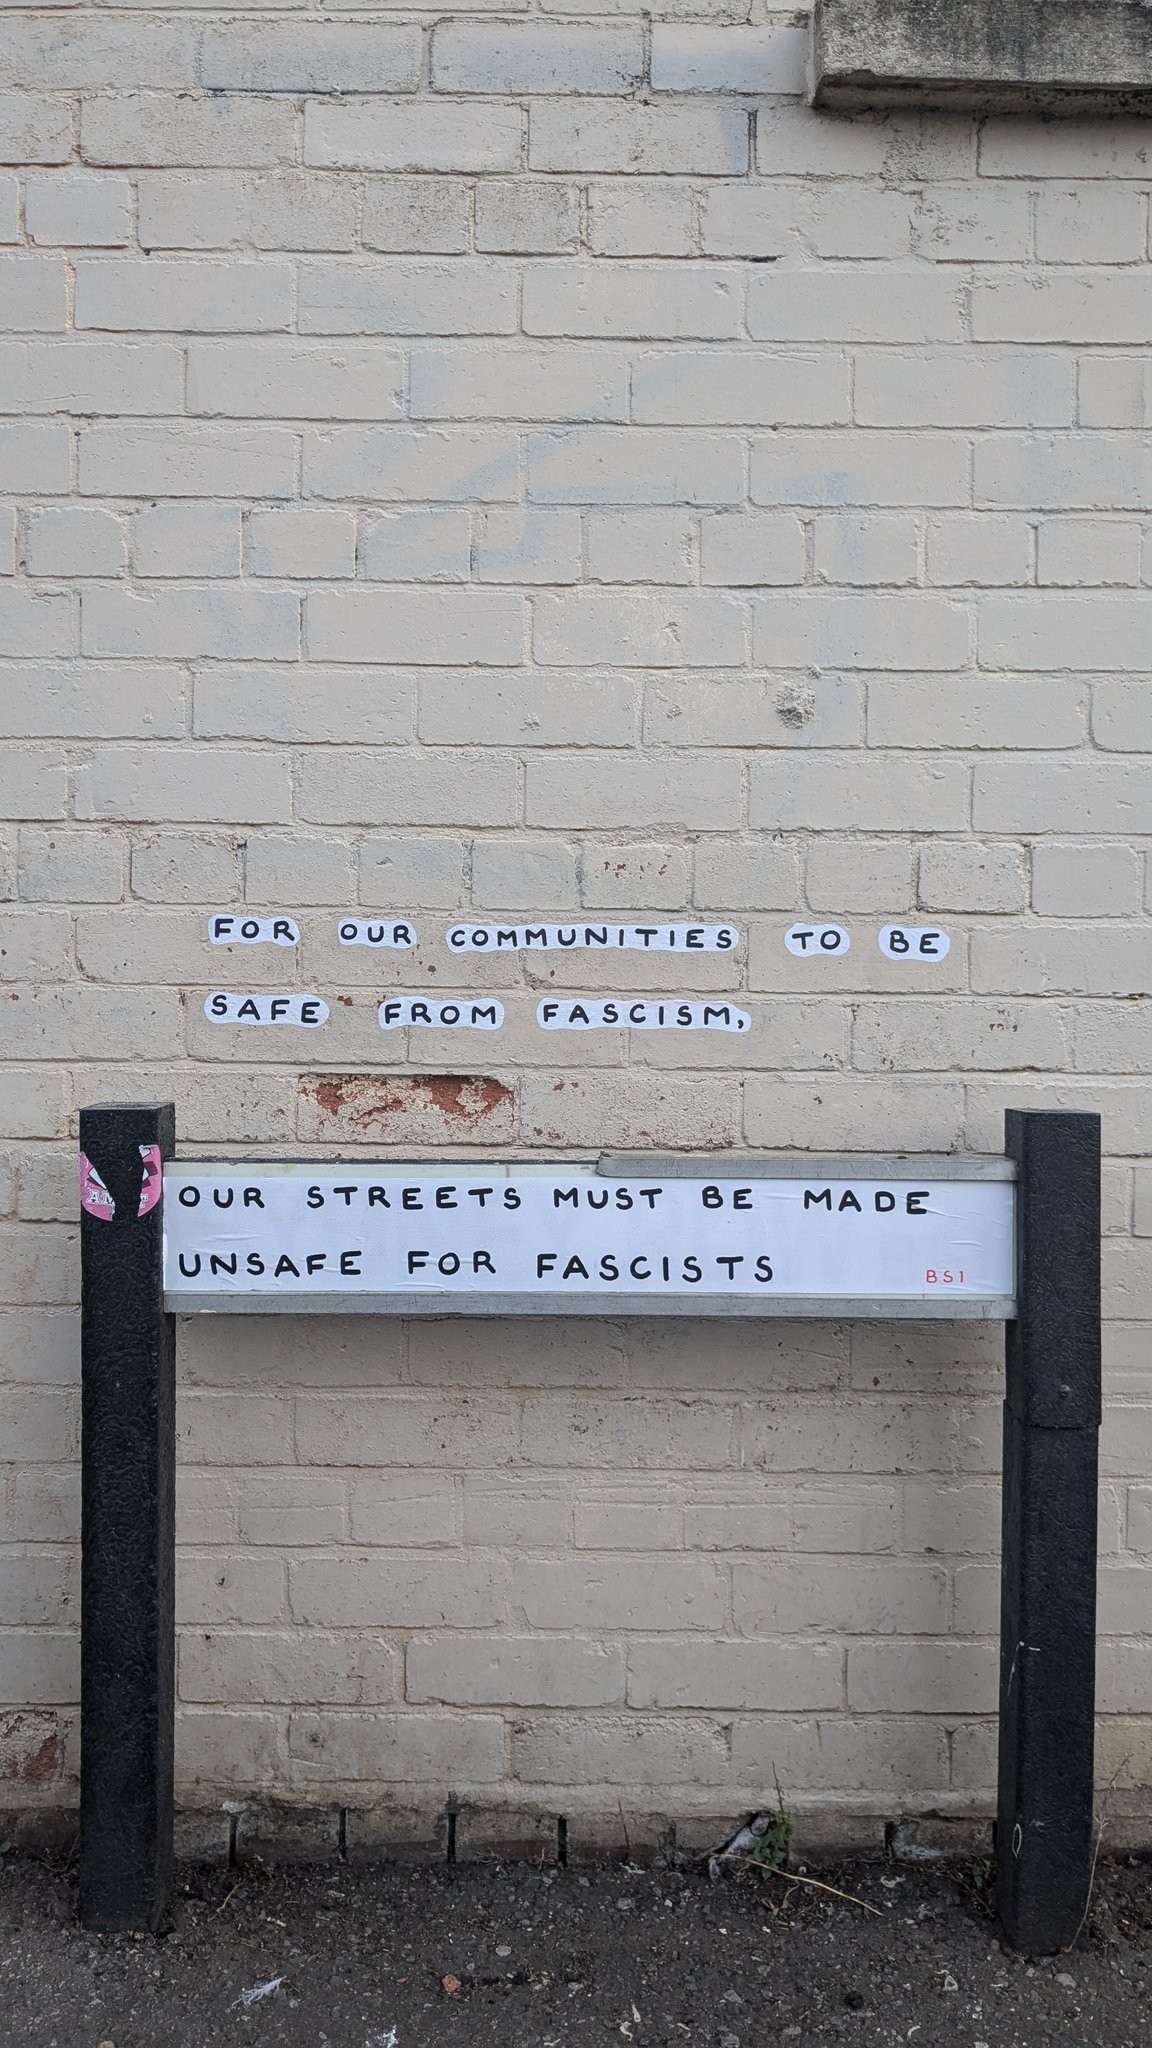 FOR OUR COMMUNITIES TO BE
SAFE FROM FASCISM,
OUR STREETS MUST BE MADE
UNSAFE FOR FASCISTS
BS1